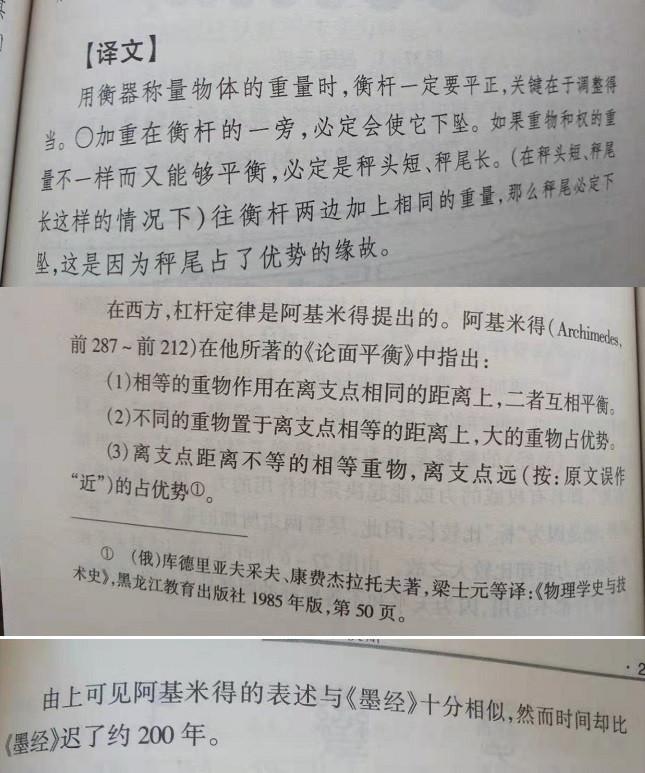 【译文】
用衡器称量物体的重量时,衡杆一定要平正,关键在于调整得
当。〇加重在衡杆的一旁,必定会使它下坠。如果重物和权的重
量不一样而又能够平衡,必定是秤头短、秤尾长。(在秤头短、秤尾
长这样的情况下)往衡杆两边加上相同的重量,那么秤尾必定下
坠,这是因为秤尾占了优势的缘故。
在西方,杠杆定律是阿基米得提出的。阿基米得(Archimedes,
前287~前212)在他所著的《论面平衡》中指出:
(1)相等的重物作用在离支点相同的距离上,二者互相平衡。
(2)不同的重物置于离支点相等的距离上,大的重物占优势。
(3)离支点距离不等的相等重物,离支点远(按:原文误作
“近”)的占优势①。
① (俄)库德里亚夫采夫、康费杰拉托夫著,梁士元等译:《物理学史与技
术史》,黑龙江教育出版社1985年版,第50页。
· 2
由上可见阿基米得的表述与《墨经》十分相似,然而时间却比
《墨经》迟了约200年。